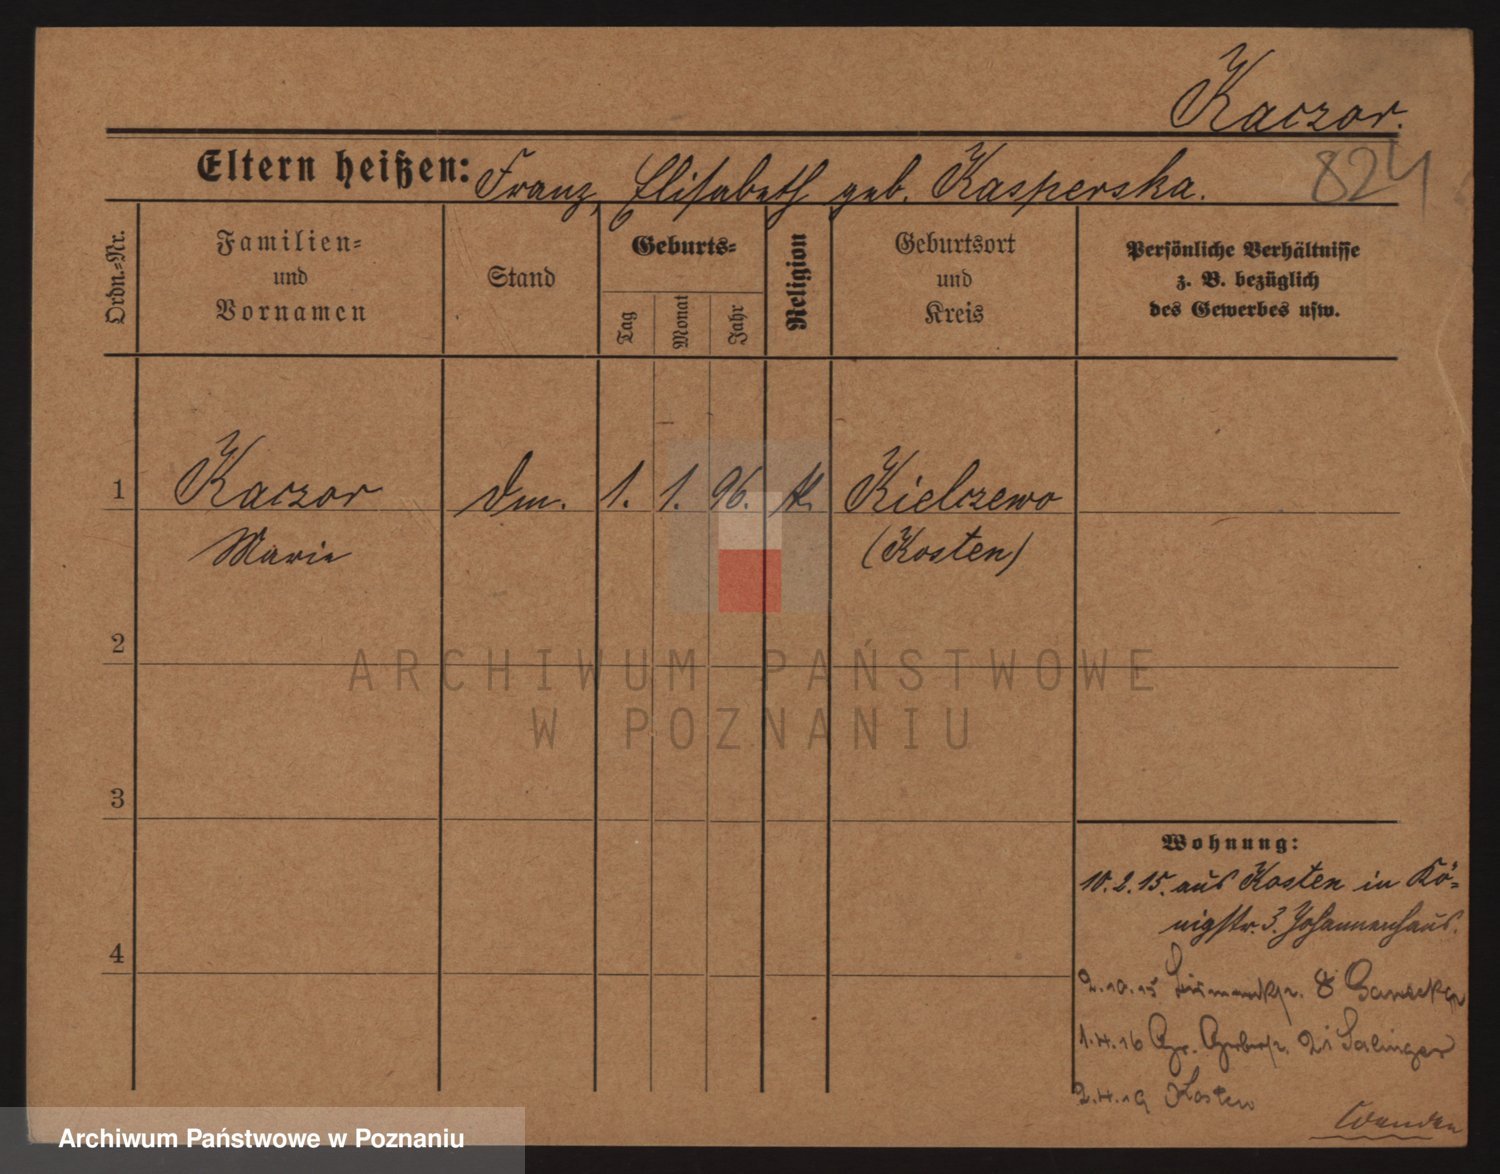 Kaczor.
824
Eltern heißen: Franz, Elisabeth geb. Kasperska.
Ordn.-Nr.
Familien-
und
Vornamen
Stand
Geburts-
Tag
Monat
Jahr
Religion
Geburtsort
und
Kreis
Persönliche Verhältnisse
z. B. bezüglich
des Gewerbes usw.
1 Kaczor Dm. 1. 1. 96. k. Kielczewo
Marie (Kosten)
2
3
4
ARCHIWUM PAŃSTWOWE
W POZNANIU
Wohnung:
10.2.15. aus Kosten in Kö-
nigstr. 3. Johannenhaus.
2.10.15 8
1.4.16 Gr. Gerberstr. 21 Salinger
2.4.19 Kosten
Wenden
Archiwum Państwowe w Poznaniu